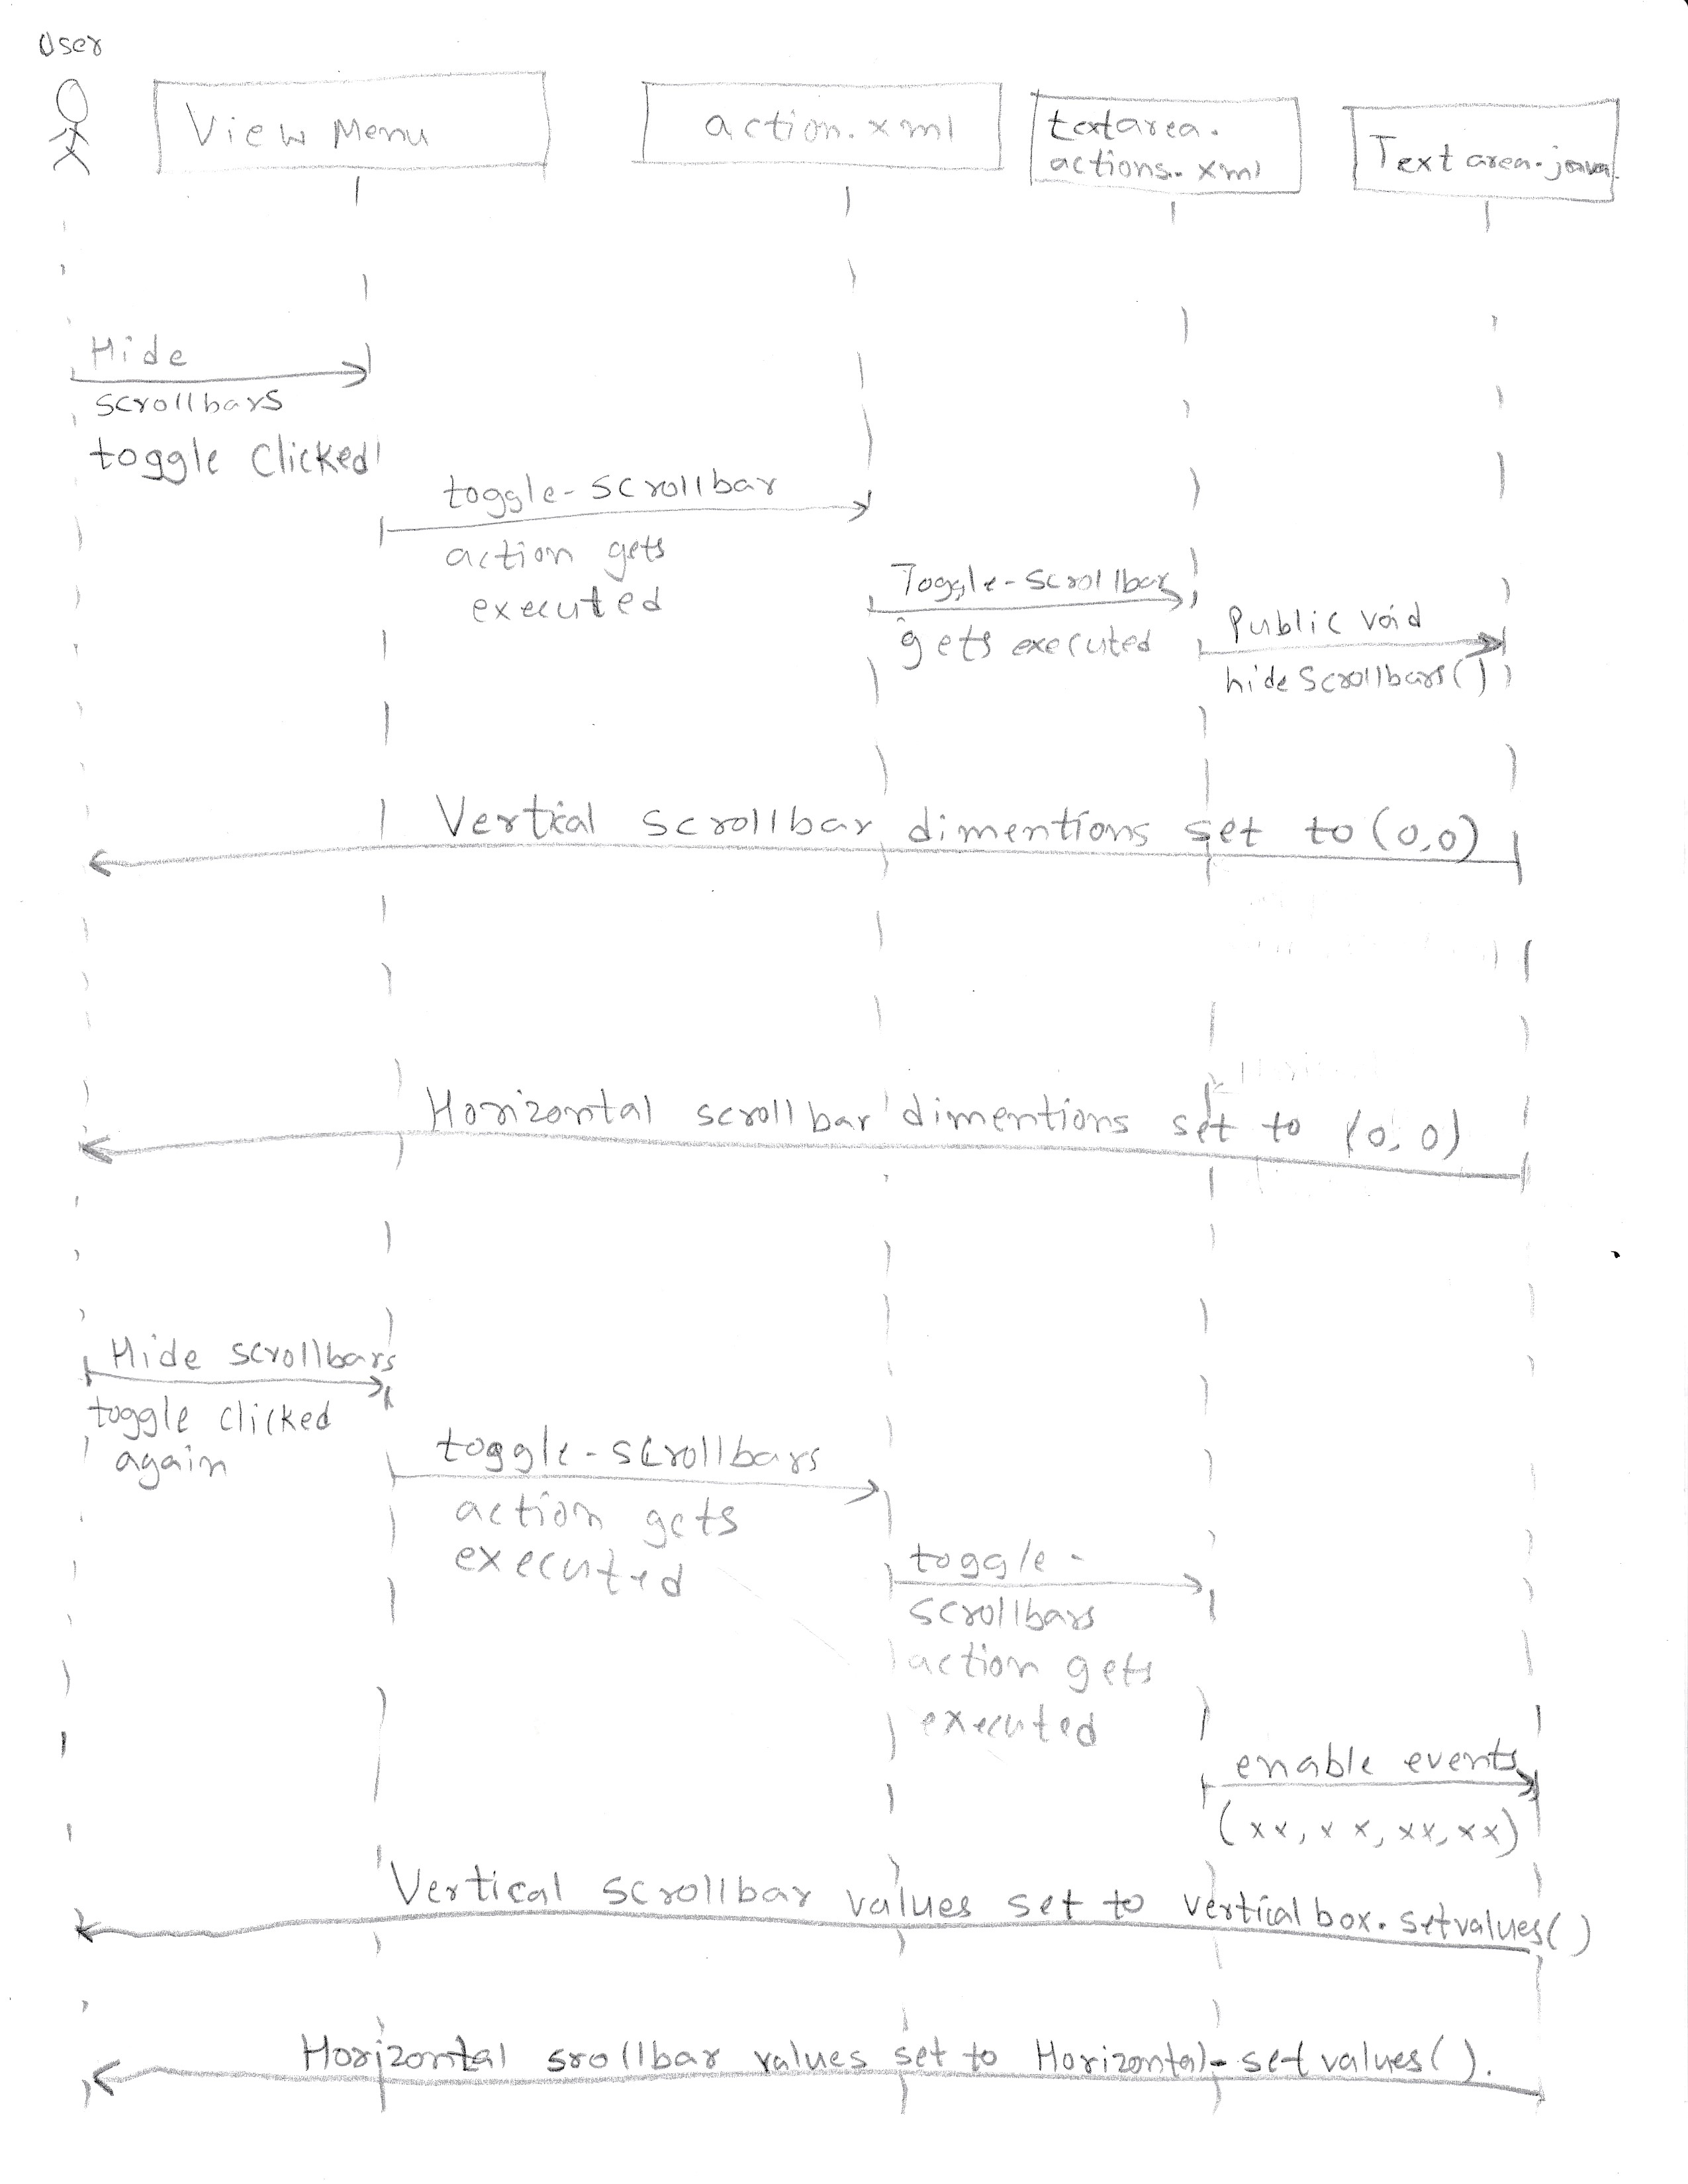 User
View Menu
action.xml
textarea.
actions.xml
Textarea.java
Hide
scrollbars
toggle Clicked
toggle-scrollbar
action gets
executed
Toggle-scrollbar
gets executed
Public void
hideScrollbars()
Vertical scrollbar dimentions set to (0,0)
Horizontal scrollbar dimentions set to (0,0)
Hide scrollbars
toggle clicked
again
toggle-scrollbars
action gets
executed
toggle-
scrollbars
action gets
executed
enable events
(xx, xx, xx, xx)
Vertical scrollbar values set to vertical box.setvalues()
Horizontal srollbar values set to Horizontal-set values().